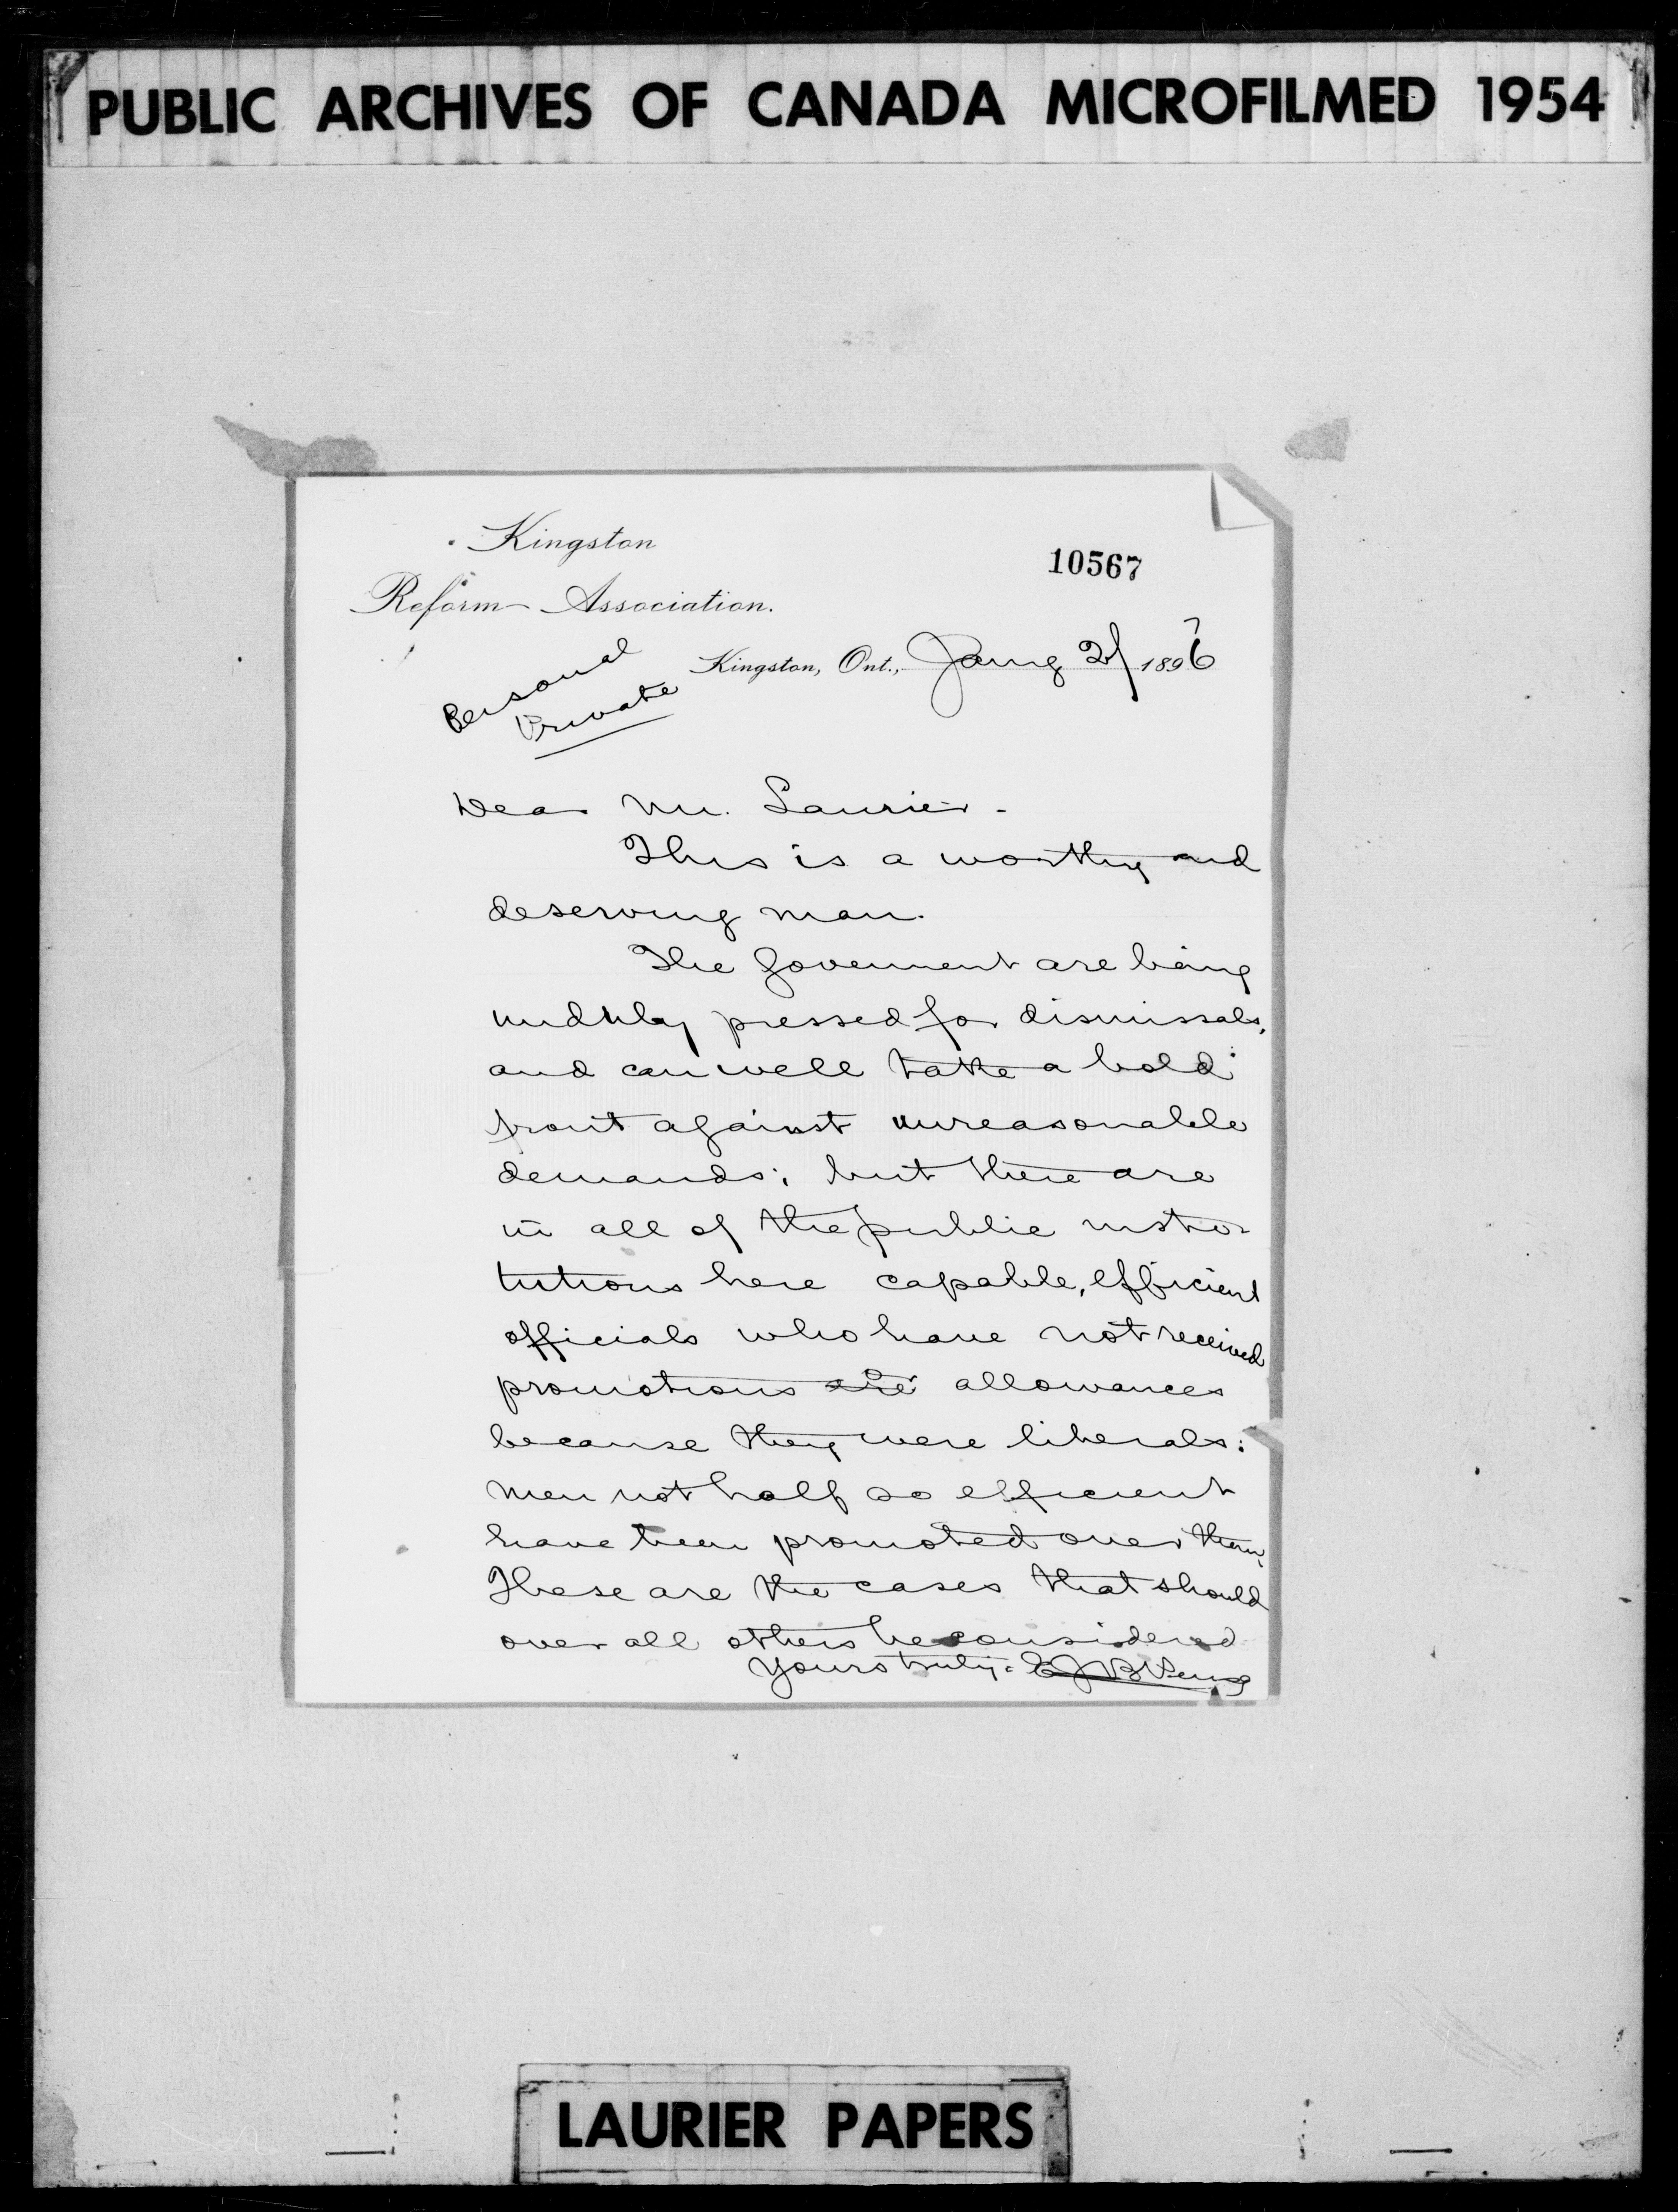 PUBLIC ARCHIVES OF CANADA MICROFILMED 1954
Kingston
10567
Reform Association.
Kingston, Ont., Jany 2/ 1896
7
Personal
Private
Dear Mr. Laurier -
This is a worthy and
deserving man.
The Goverment are being
unduly pressed for dismissals,
and can well take a bold
front against unreasonable
demands; but there are
in all of the public insti-
tutions here capable, efficient
officials who have not received
promotions allowances
because they were liberals:
men not half so efficient
have been promoted over them.
These are the cases that should
over all others be considered
Yours truly.
LAURIER PAPERS